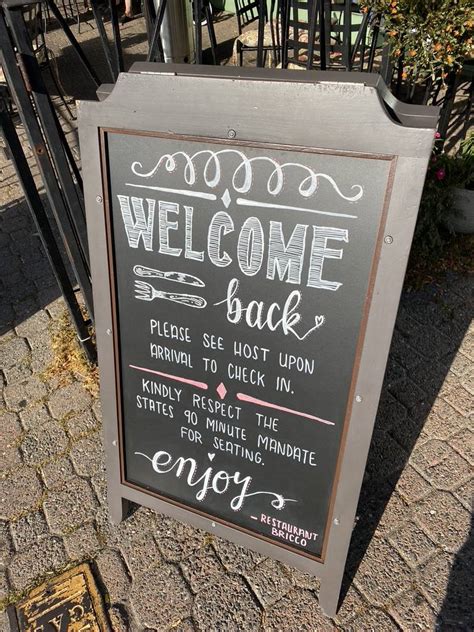 WELCOME
back
PLEASE SEE HOST UPON
ARRIVAL TO CHECK IN.
KINDLY RESPECT THE
STATES 90 MINUTE MANDATE
FOR SEATING.
enjoy
- RESTAURANT
BRICCO